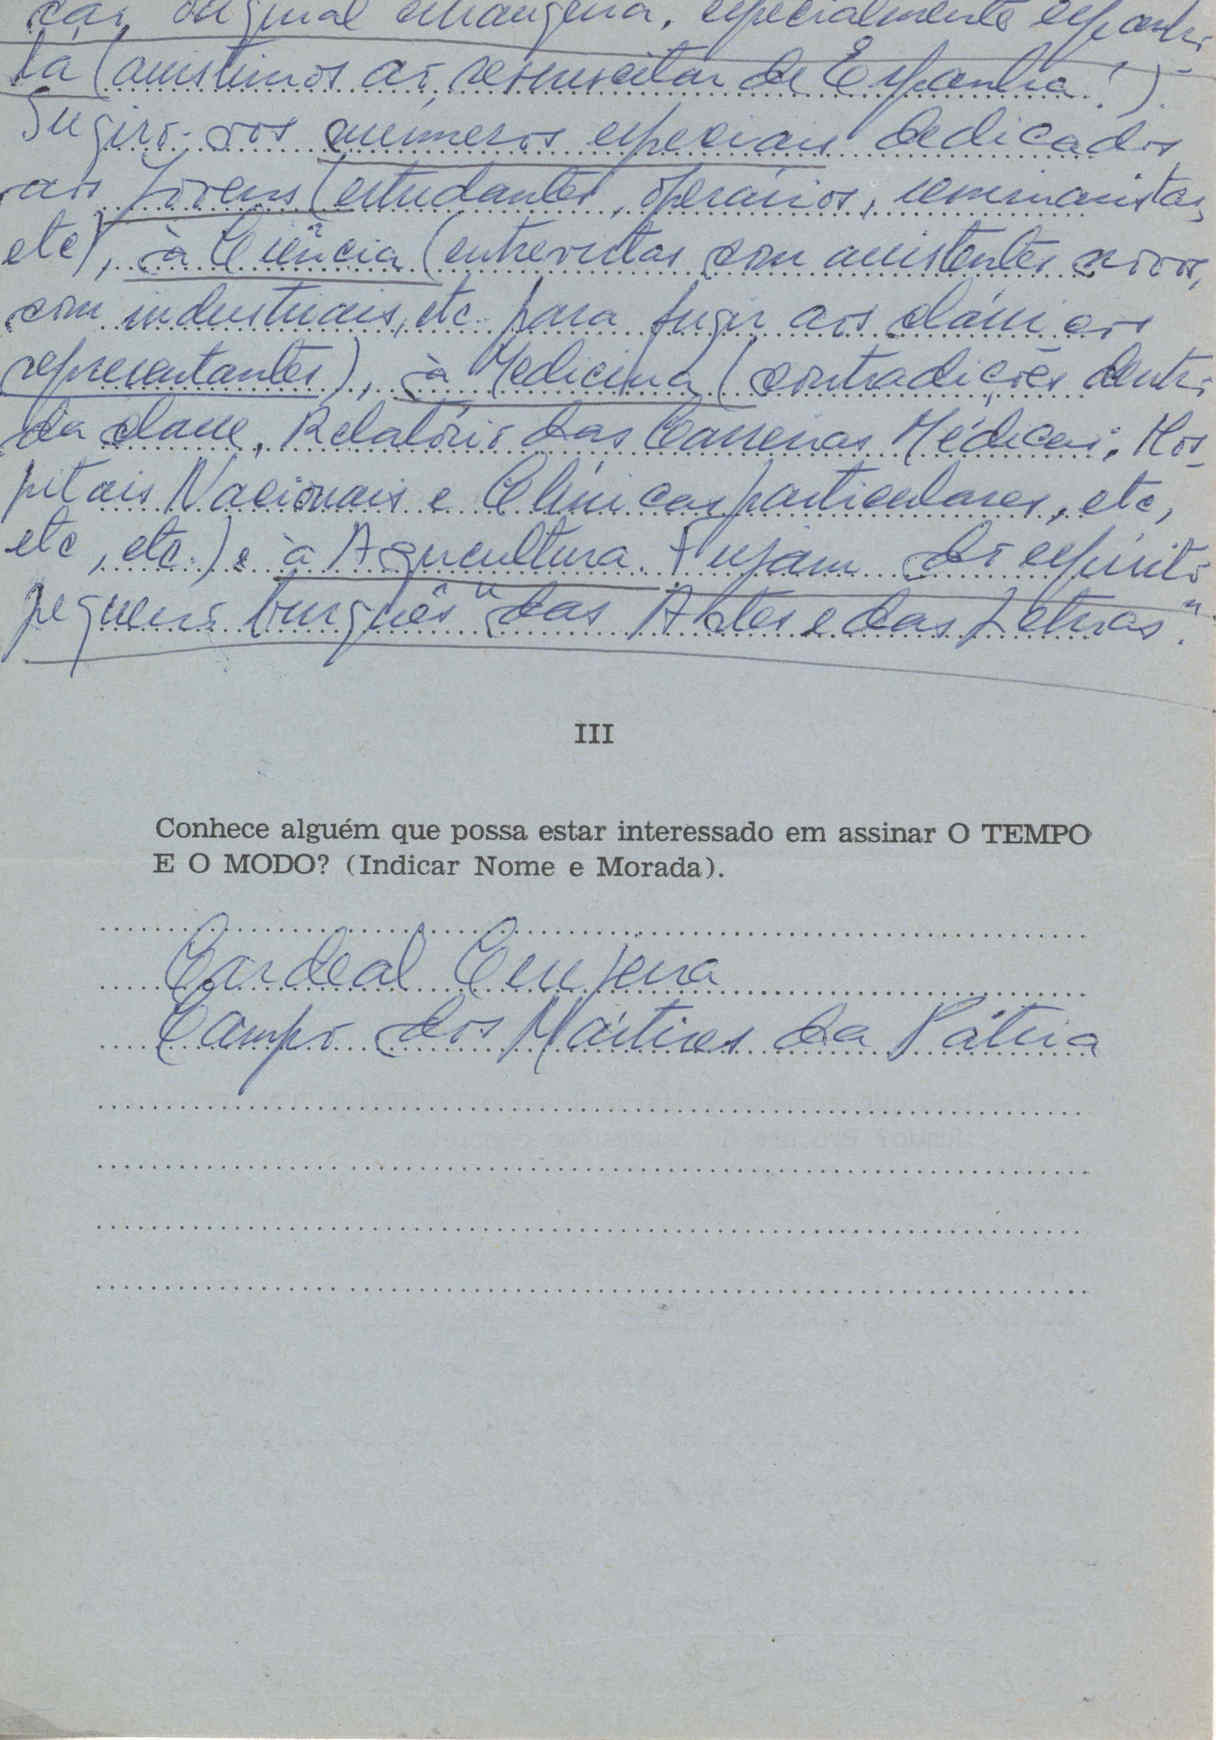 ção original estrangeira, especialmente espanho-
la (assistimos ao ressuscitar de Espanha!).
Sugiro-vos números especiais dedicados
aos jovens (estudantes, operários, seminaristas,
etc), à Ciência (entrevistas com assistentes novos,
com industriais, etc. para fugir aos clássicos
representantes), à Medicina (contradições dentro
da classe, Relatório das Carreiras Médicas, Hos-
pitais Nacionais e Clínicas particulares, etc,
etc, etc.) e à Agricultura. Fujam do espírito
pequeno burguês "das Artes e das Letras".
III
Conhece alguém que possa estar interessado em assinar O TEMPO
E O MODO? (Indicar Nome e Morada).
Cardeal Cerejeira
Campo dos Mártires da Pátria